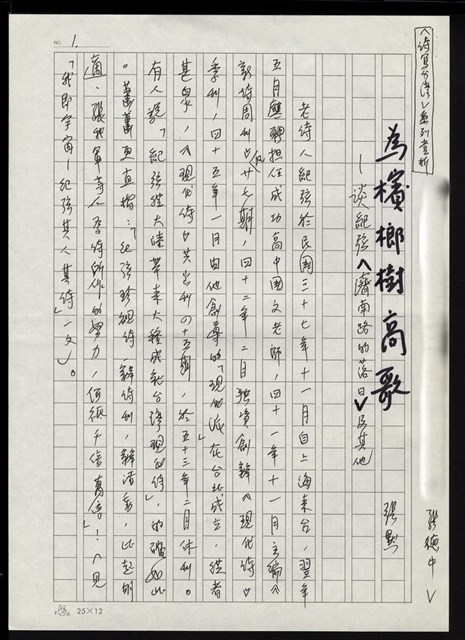 NO. 1.
〈詩寫台灣〉系列賞析
為檳榔樹高歌
—談紀弦〈濟南路的落日〉及其他
張默
張德中
老詩人紀弦於民國三十七年十一月自上海來台，翌年
五月應聘擔任成功高中國文老師，四十一年十一月主編《
新詩周刊》廿七期，四十二年二月獨資創辦《現代詩》
季刊，四十五年一月由他創導的「現代派」在台北成立，從者
甚眾，《現代詩》共出刊四十五期，於五十三年二月休刊。
有人說「紀弦從大陸帶來火種成就台灣現代詩」，的確如此
。蕭蕭更直指：「紀弦珍視詩，辦詩刊，辦活動，比起胡
適、張我軍等人為詩所作的努力，何祇千倍萬倍！」〈見
「我即宇宙—紀弦其人其詩」一文〉。
25×12